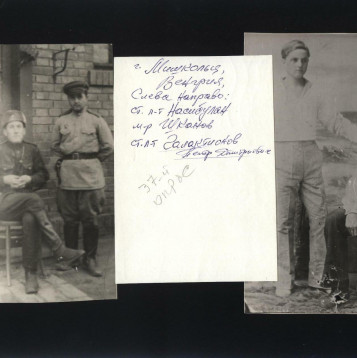 г. Мишкольц,
Венгрия
Слева направо:
ст. л-т Насибулян
м-р Шканов
ст. л-т Галактионов
Петр Дмитриевич
37-й
опрос